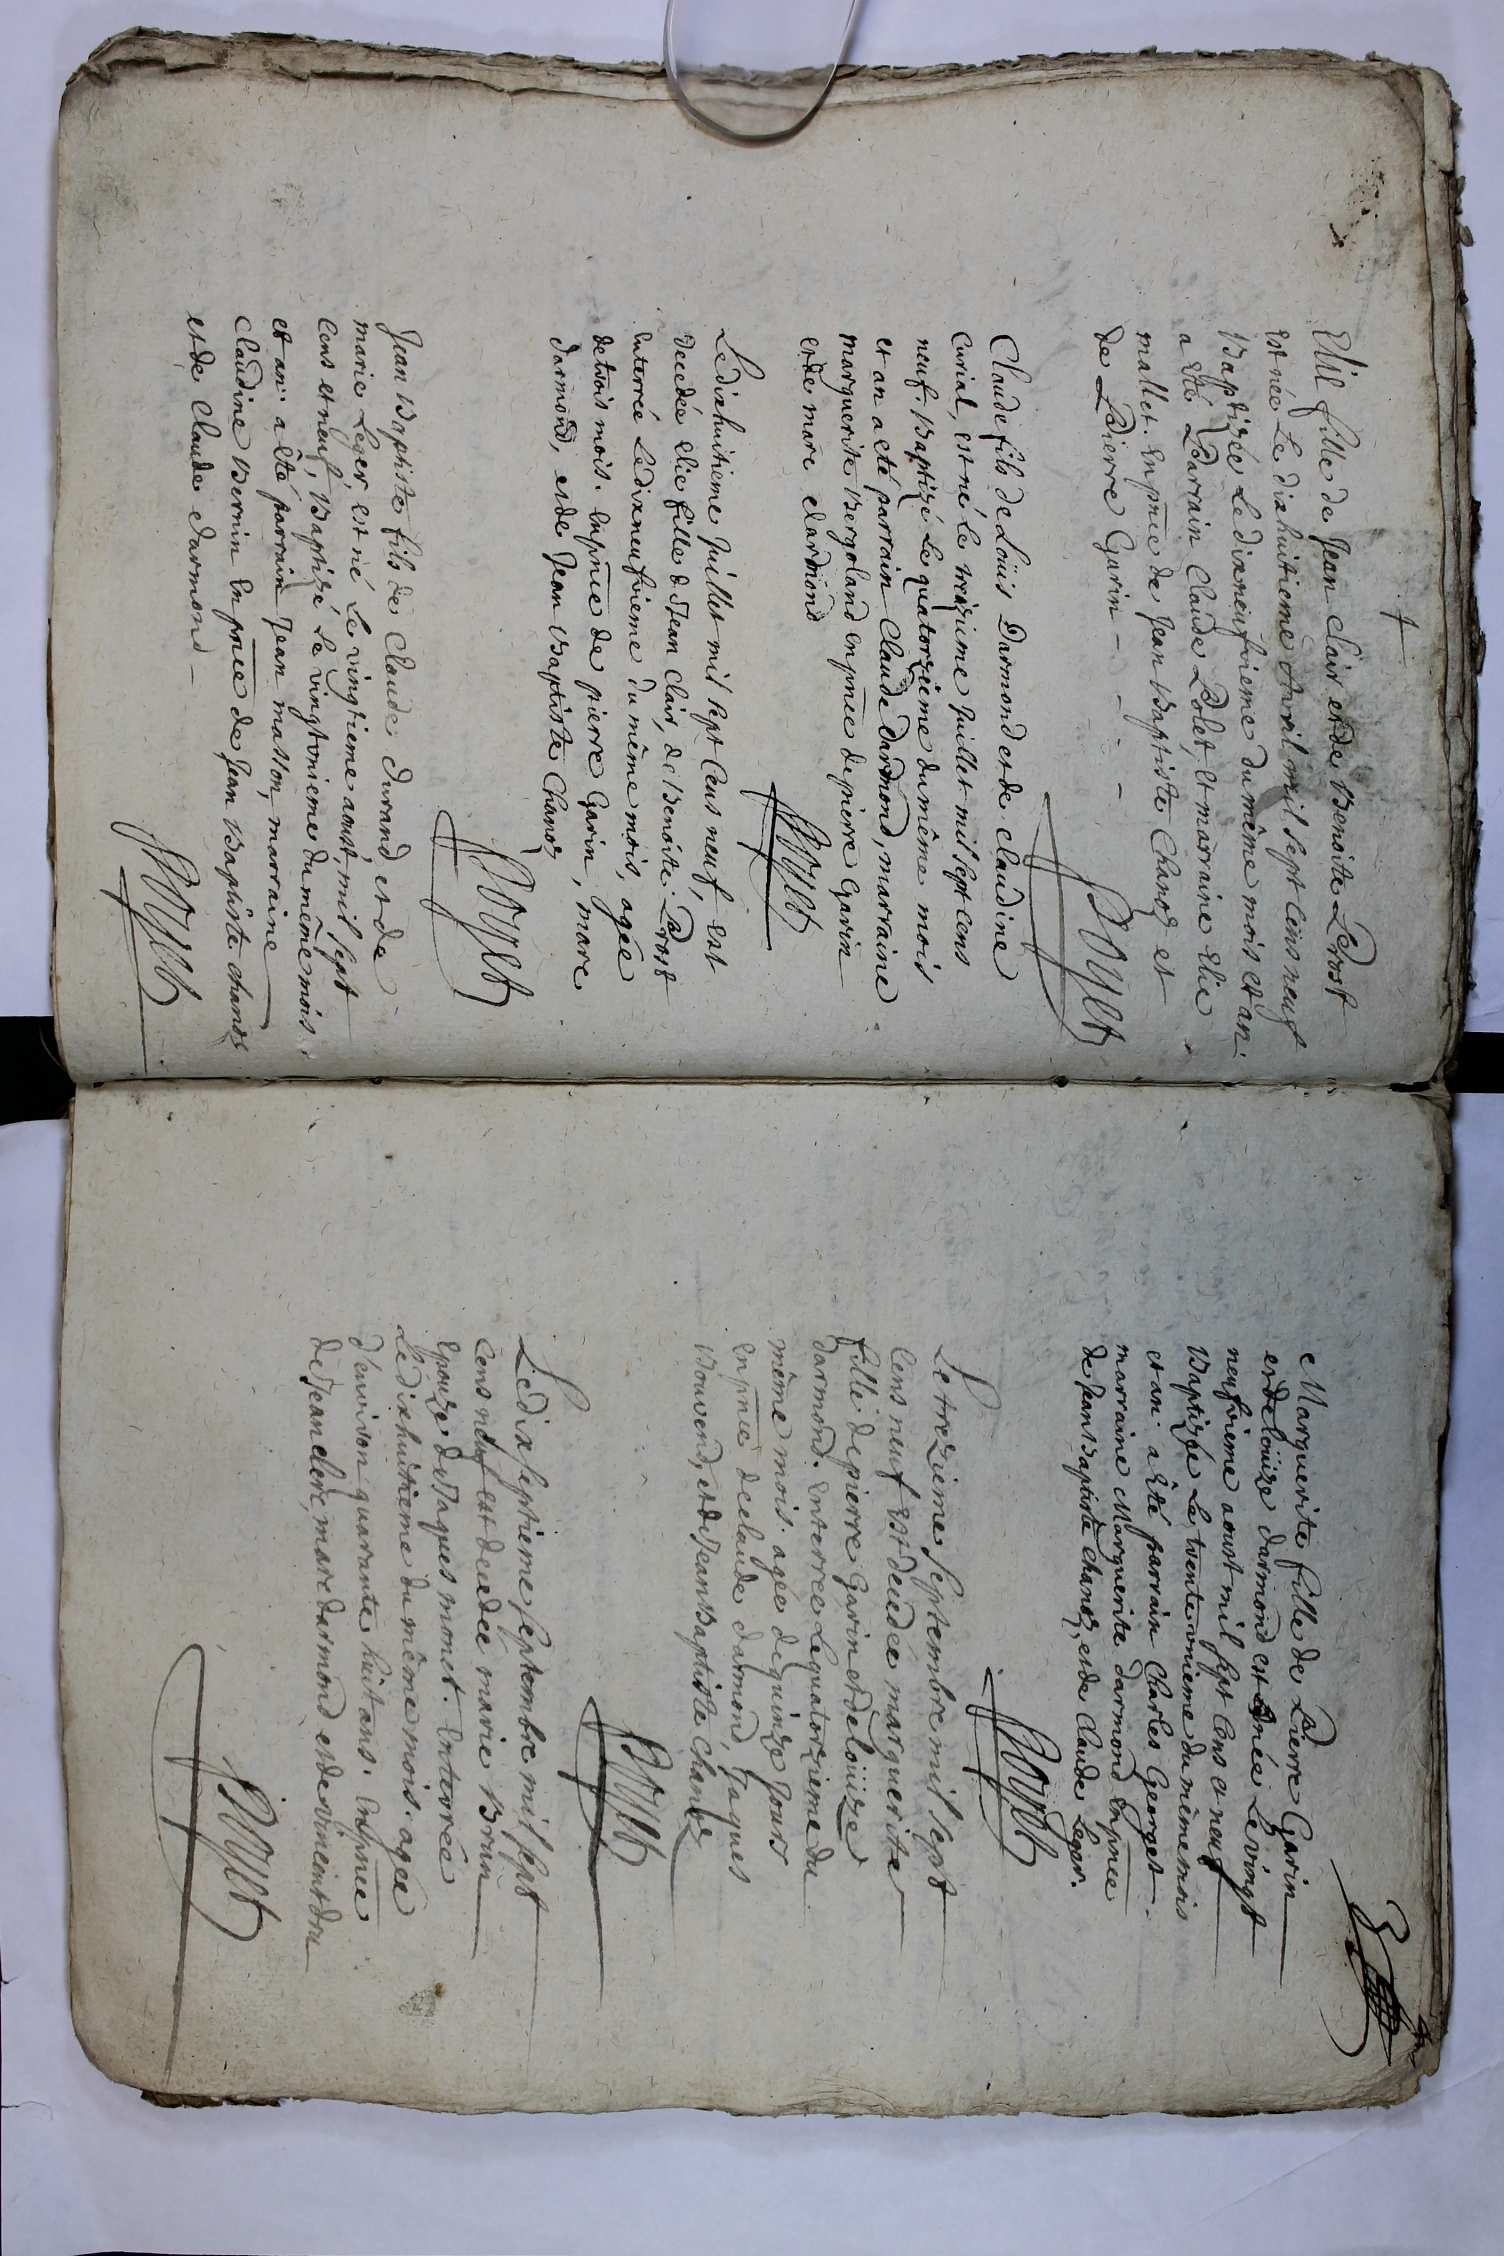 Elie fille de Jean Clair et de Benoite Prost
est née Le dixhuitieme Avril mil sept cens neuf
Baptizée Le dixneufvieme du même mois et an.
a êté Parrain Claude Polet, et marraine Elie
mallet. En pnce de Jean Baptiste Chanoz et
de Pierre Garin - - - -
Poylt
Claude fils de Loüis Darmond et de Claudine
Curial, est né Le treizieme Juillet mil sept cens
neuf. Baptizé Le quatorzieme du même mois
et an a eté parrain Claude Darmond, marraine
marguerite Bergoland en pnce de pierre Garin
et de marc darmond
Poylt
Le dixhuitieme Juillet mil sept cens neuf, est
decedée Elie fille de Jean Clair, de Benoite Prost
Enterrée Le dixneufvieme du même mois, agée
de trois mois. En pnce de pierre Garin, marc
darmond, et de Jean Baptiste Chanoz
Poylt
Jean Baptiste fils de Claude Durand et de
marie Leger, est né Le vingtieme aoust, mil sept
cens et neuf, Baptizé Le vingtvnieme du même mois
et an. a êté parrain Jean masson, marraine
Claudine Bernin En pnce de Jean Baptiste chanoz
et de Claude darmond -
Poylt
Marguerite fille de Pierre Garin
et de Loüize darmond est née Le vingt
neufvieme aoust mil sept cens et neuf
Baptizée Le trente vnieme du même mois
et an. a êté parrain Charles Georget.
marraine Marguerite darmond En pnce
de Jean Baptiste chanoz, et de Claude Leger.
Poylt
Le treizieme septembre mil sept
cens neuf Est decedée marguerite
fille de pierre Garin et de Loüize
darmond. Enterrée Le quatorzieme du
même mois. agée de quinze Jours
En pnce de claude darmond, Jaques
Bouvend, et de Jean Baptiste Chanoz
Poylt
Le dix septieme septembre mil sept
cens neuf est decedée marie Brun
Epouze de Jaques monet. Enterrée
Le dixhuitieme du même mois. agée
d'environ quarante huit ans. En pnce
de Jean clere, marc darmond et de vincent dru
Poylt